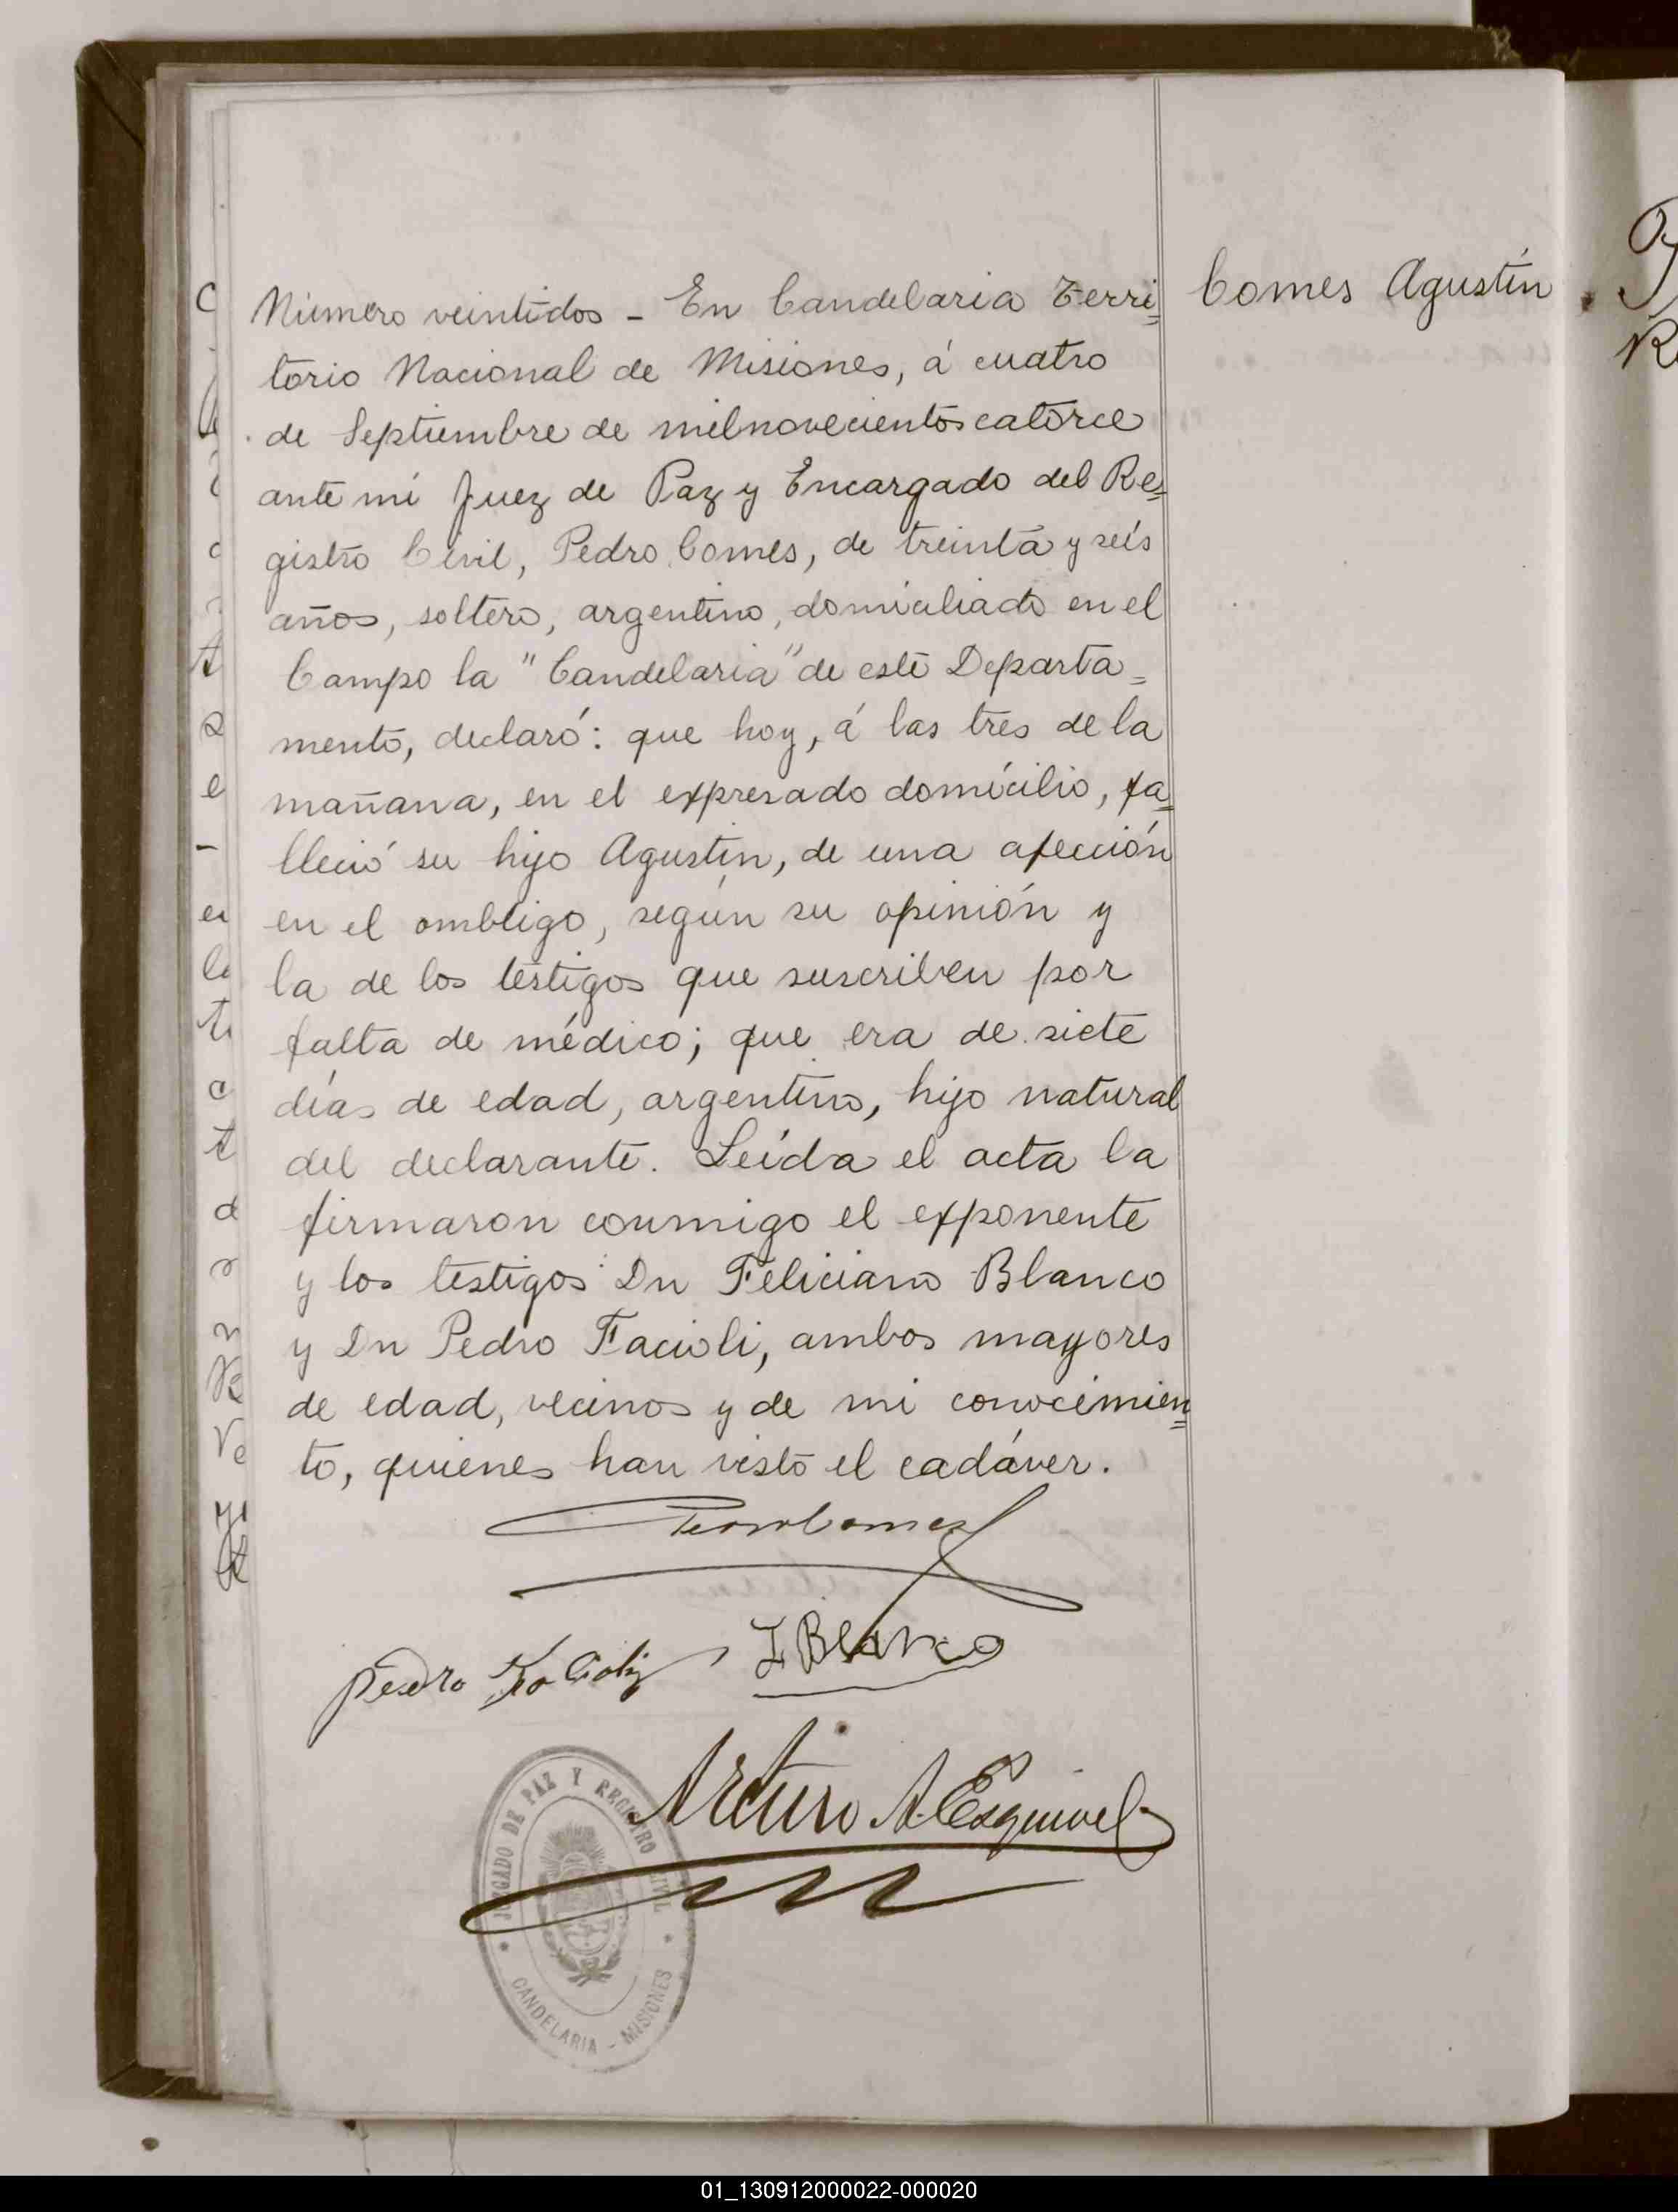 Número veintidos - En Candelaria Terri=
torio Nacional de Misiones, á cuatro
de Septiembre de milnovecientos catorce
ante mi Juez de Paz y Encargado del Re=
gistro Civil, Pedro Comes, de treinta y seis
años, soltero, argentino, domiciliado en el
Campo la "Candelaria" de este Departa=
mento, declaró: que hoy, á las tres de la
mañana, en el expresado domicilio, fa=
lleció su hijo Agustin, de una afección
en el ombligo, según su opinión y
la de los testigos que suscriben por
falta de médico; que era de siete
días de edad, argentino, hijo natural
del declarante. Leída el acta la
firmaron conmigo el exponente
y los testigos Dn Feliciano Blanco
y Dn Pedro Facioli, ambos mayores
de edad, vecinos y de mi conocimien=
to, quienes han visto el cadáver.
Comes Agustín
Pedro Comes
Pedro
Blanco
Arturo A. Esquivel
JUZGADO DE PAZ Y REGISTRO CIVIL
CANDELARIA - MISIONES
01_130912000022-000020